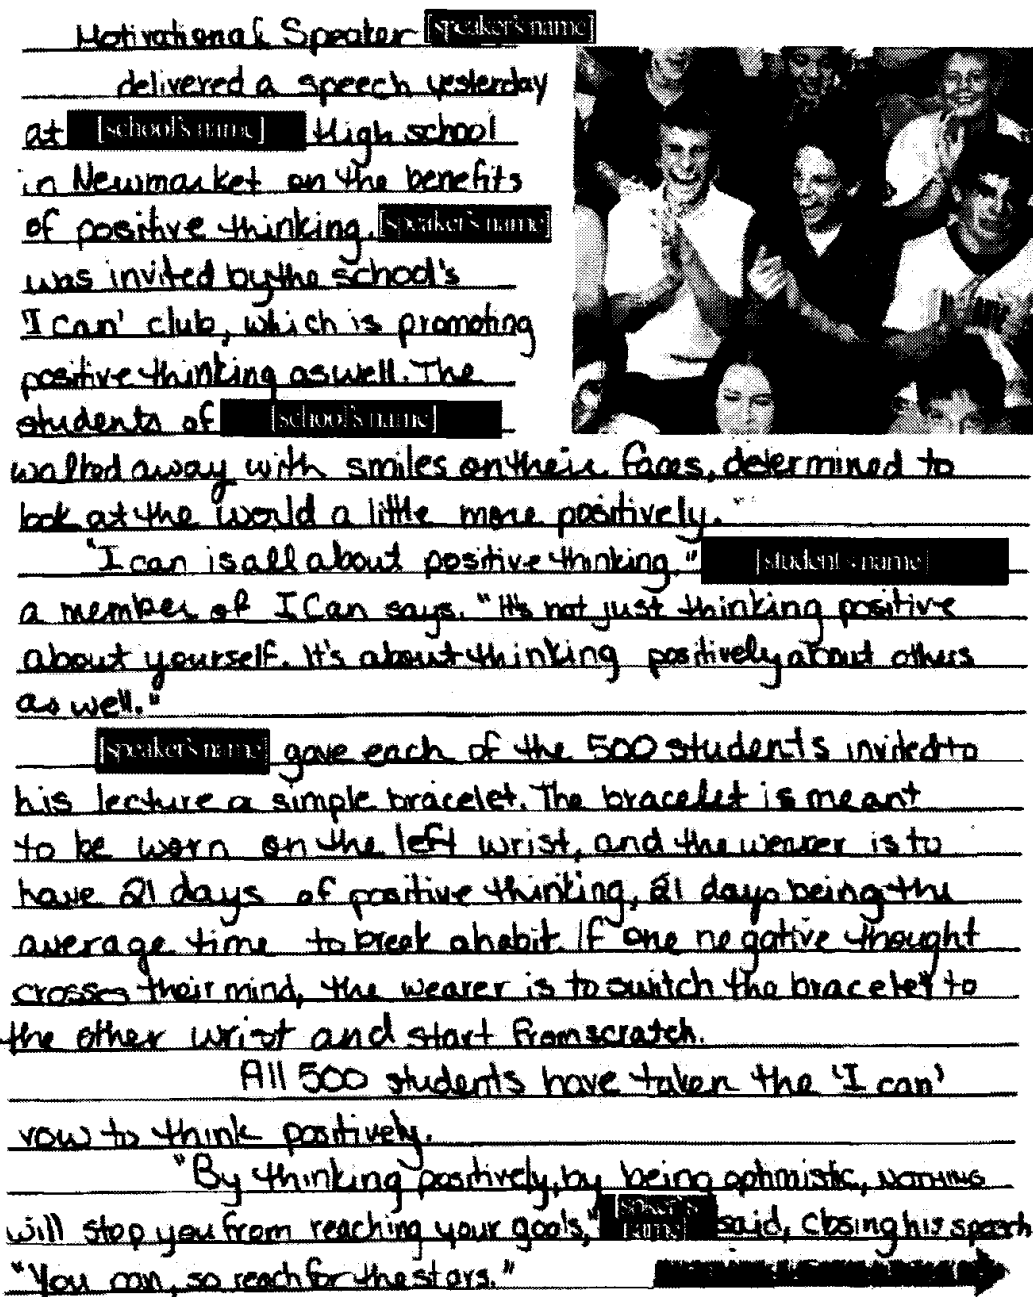 Motivational Speaker [speaker's name]
delivered a speech yesterday
at [school's name] High school
in Newmarket on the benefits
of positive thinking. [speaker's name]
was invited by the school's
'I can' club, which is promoting
positive thinking as well. The
students of [school's name]
walked away with smiles on their faces, determined to
look at the world a little more positively.
"I can is all about positive thinking," [student's name]
a member of I Can says. "It's not just thinking positive
about yourself. It's about thinking positively about others
as well."
[speaker's name] gave each of the 500 students invited to
his lecture a simple bracelet. The bracelet is meant
to be worn on the left wrist, and the wearer is to
have 21 days of positive thinking, 21 days being the
average time to break a habit. If one negative thought
crosses their mind, the wearer is to switch the bracelet to
the other wrist and start from scratch.
All 500 students have taken the 'I can'
vow to think positively.
"By thinking positively, by being optimistic, NOTHING
will stop you from reaching your goals," [speaker's name] said, closing his speech
"You can, so reach for the stars."